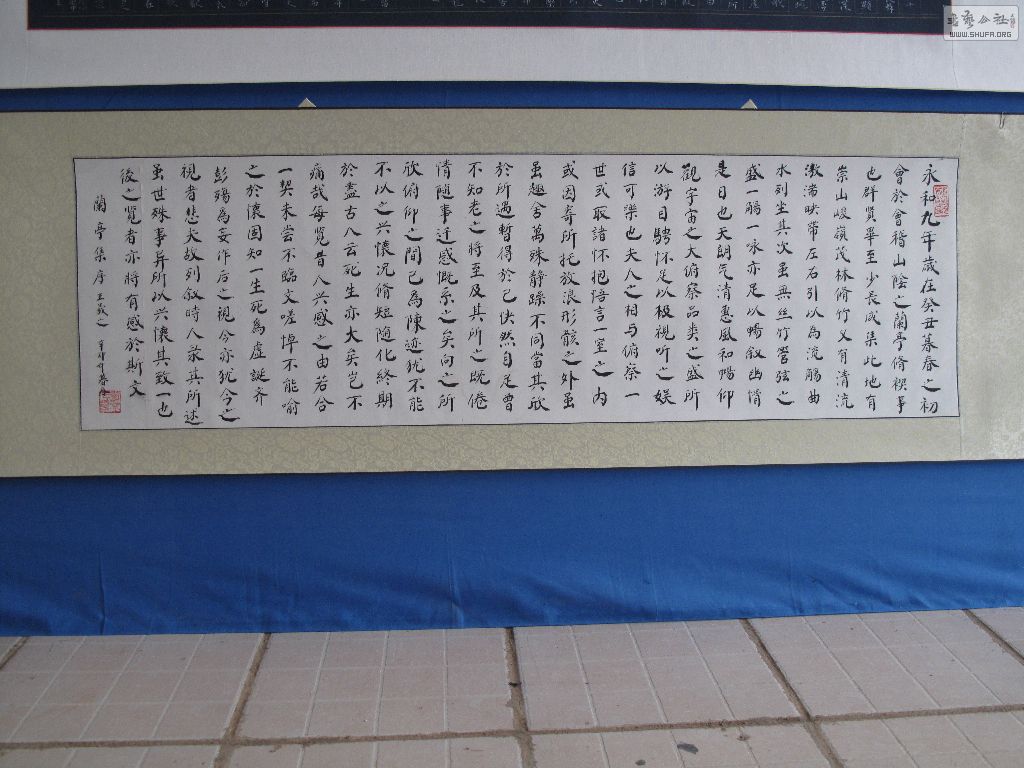 永和九年歲在癸丑暮春之初
會於會稽山陰之蘭亭脩禊事
也群賢畢至少長咸集此地有
崇山峻嶺茂林脩竹又有清流
激湍映帶左右引以為流觴曲
水列坐其次虽無丝竹管弦之
盛一觴一咏亦足以暢叙幽情
是日也天朗气清惠風和暢仰
觀宇宙之大俯察品类之盛所
以游目騁怀足以极視听之娱
信可樂也夫人之相与俯察一
世或取諸怀抱悟言一室之内
或因寄所托放浪形骸之外虽
虽趣舍萬殊静躁不同當其欣
於所遇暫得於己快然自足曾
不知老之將至及其所之既倦
情随事迁感慨系之矣向之所
欣俯仰之間已為陳迹犹不能
不以之兴懷况脩短随化終期
於盡古人云死生亦大矣岂不
痛哉每覧昔人兴感之由若合
一契未尝不臨文嗟悼不能喻
之於懷固知一生死為虚誕齐
彭殤為妄作后之視今亦犹今之
視者悲夫故列叙時人录其所述
虽世殊事异所以兴懷其致一也
後之覽者亦將有感於斯文
蘭亭集序 王羲之
書艺公社
WWW.SHUFA.ORG